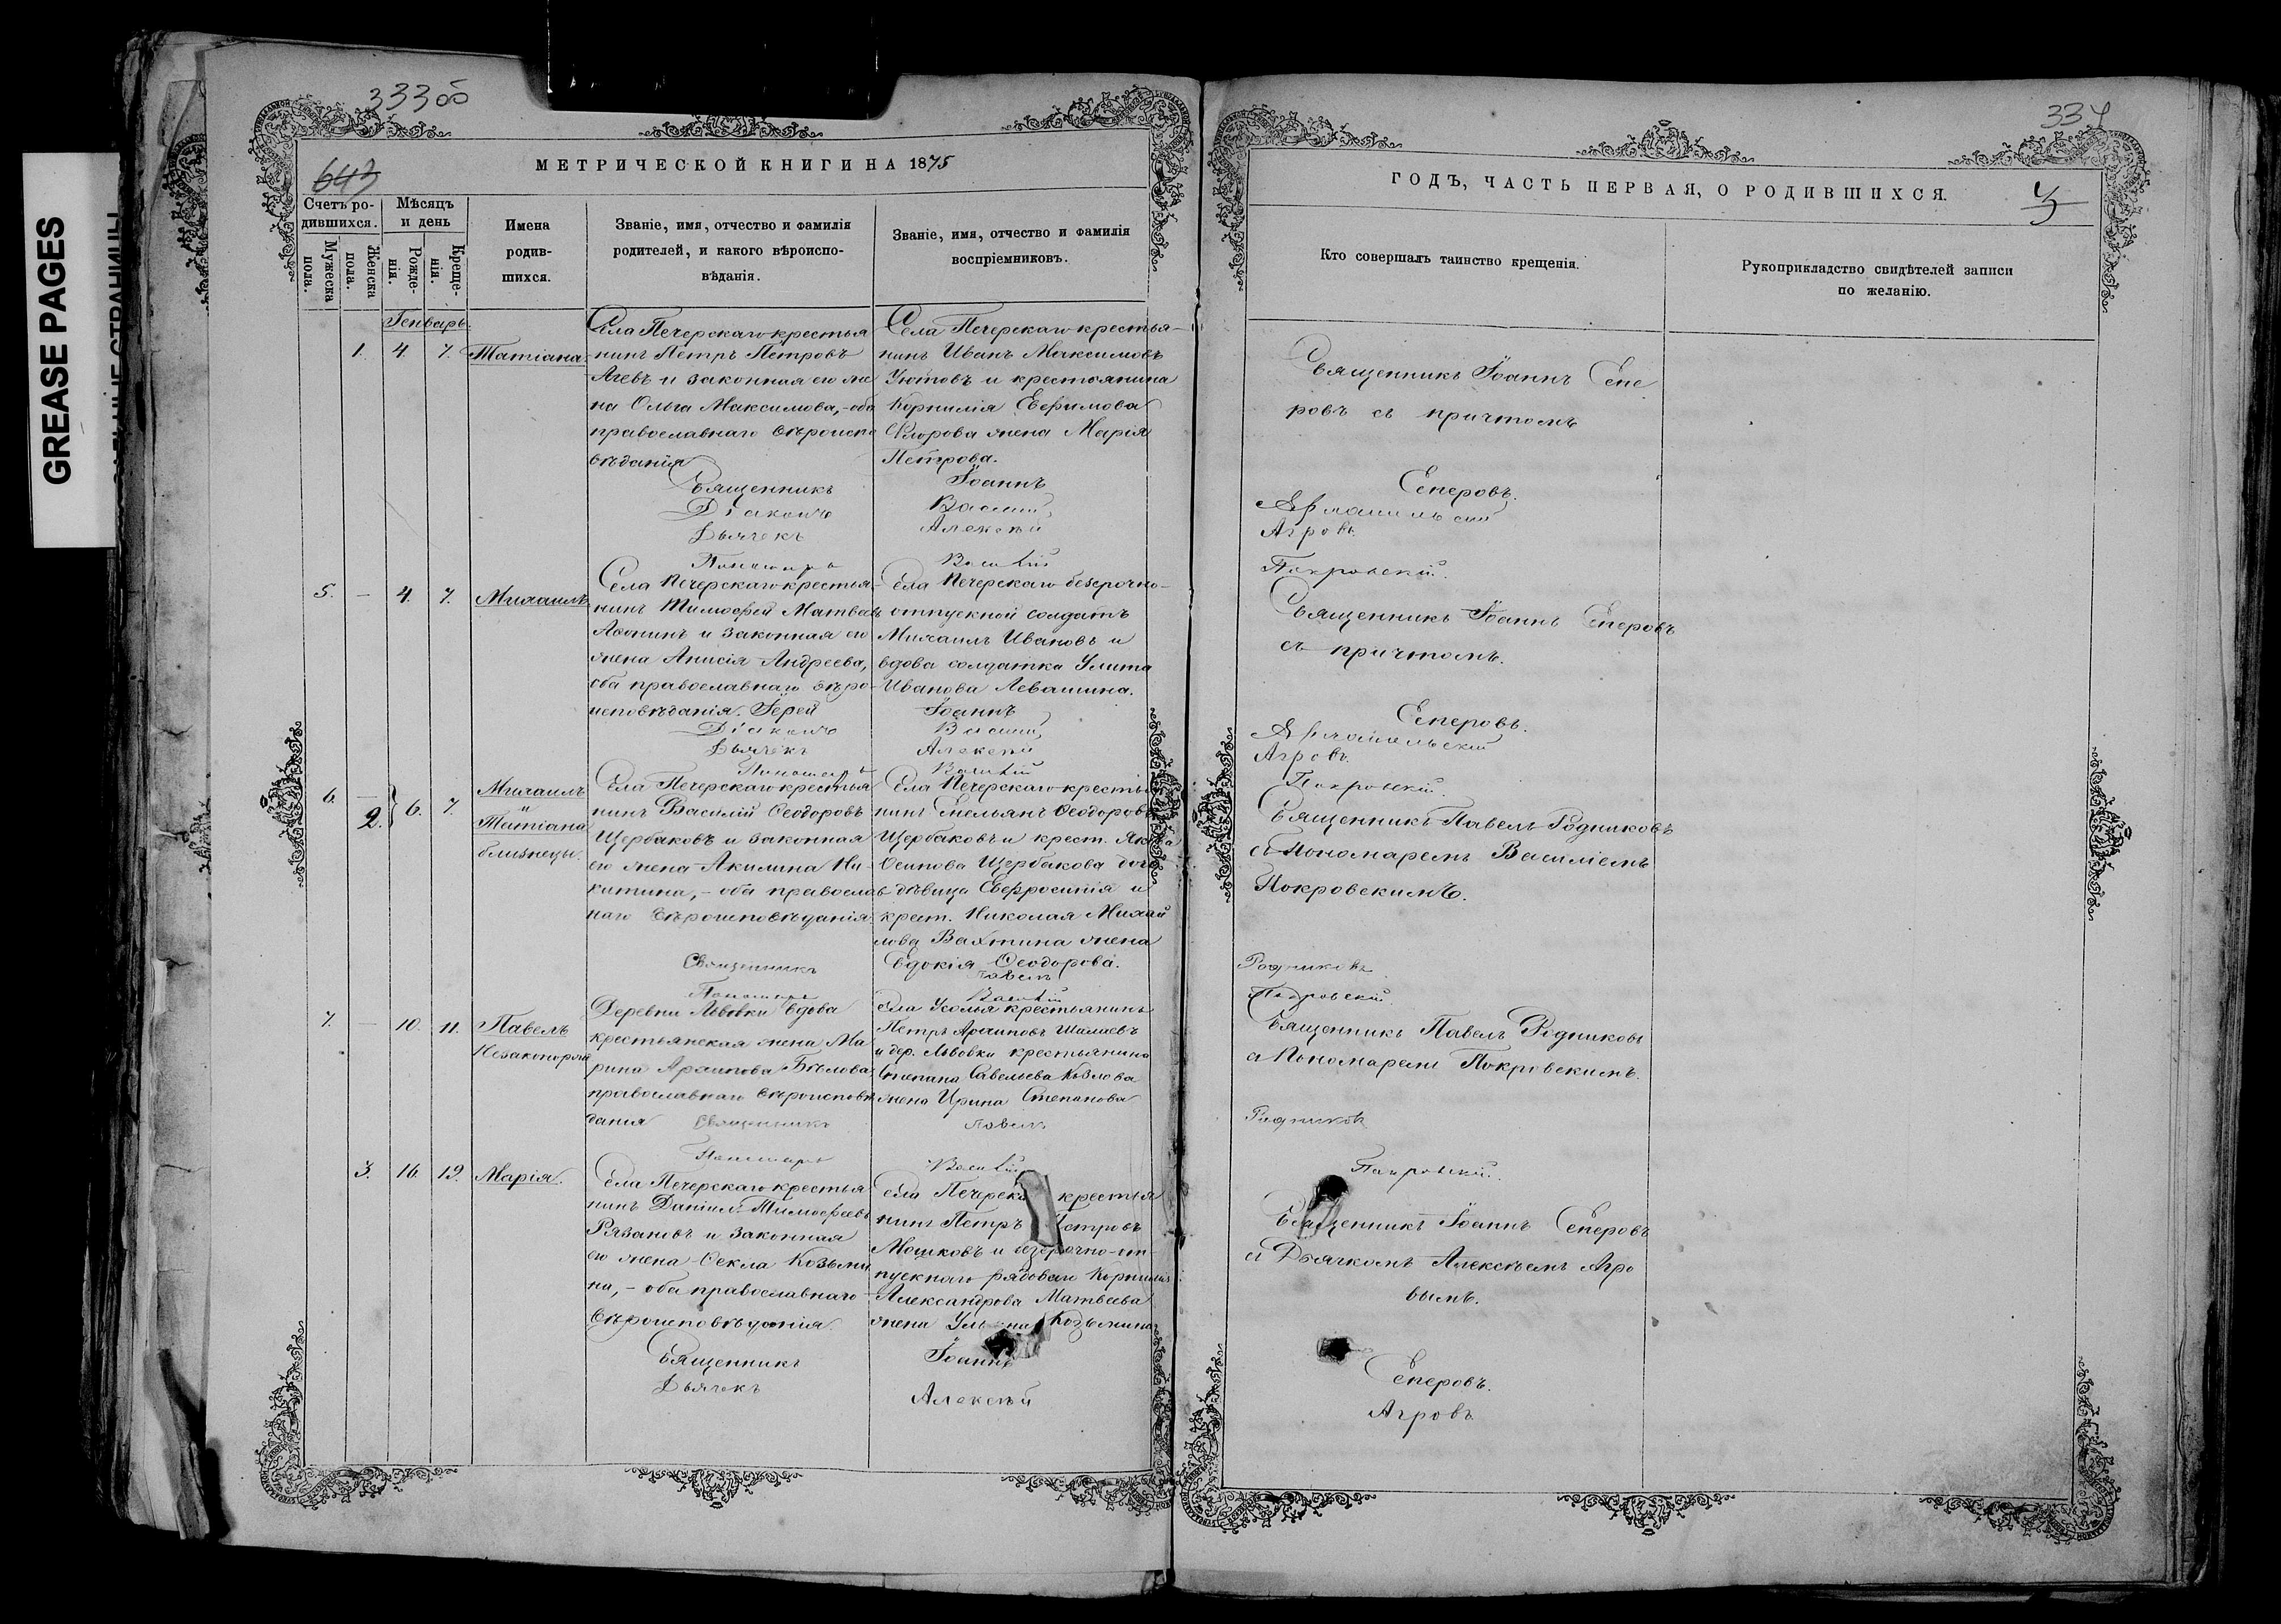 GREASE PAGES
333об
643
МЕТРИЧЕСКОЙ КНИГИ НА 1875
Счетъ ро-
дившихся.
Мужеска
пола.
Женска
пола.
Мѣсяцъ
и день
Рожде-
нія.
Креще-
нія.
Имена
родив-
шихся.
Званіе, имя, отчество и фамилія
родителей, и какого вѣроиспо-
вѣданія.
Званіе, имя, отчество и фамилія
воспріемниковъ.
Генварь.
1. 4. 7. Татіана
Села Печерскаго крестья
нинъ Петръ Петровъ
Агевъ и законная его же
на Ольга Максимова,-оба
православнаго вѣроиспо
вѣданія
Села Печерскаго крестья-
нинъ Иванъ Максимовъ
Уютовъ и крестьянина
Корнилія Евфимова
Фларова жена Марія
Петрова.
Священникъ Іоаннъ
Діаконъ Василій
Дьячекъ Алексѣй
Пономарь Василій
5. - 4. 7. Михаилъ
Села Печерскаго крестья-
нинъ Тимофей Матвеевъ
Афонинъ и законная его
жена Анисія Андреева,
оба православнаго вѣро-
исповѣданія. Іерей
Села Печерскаго безсрочно-
отпускной солдатъ
Михаилъ Ивановъ и
вдова солдатка Улита
Иванова Левашина.
Іоаннъ
Діаконъ Василій
Дьячекъ Алексѣй
Пономарь Василій
6. - 2. 6. 7.
Михаилъ
и
Татіана
близнецы.
Села Печерскаго крестья
нинъ Василій Ѳеодоровъ
Щербаковъ и законная
его жена Акилина Ни-
китина,- оба православ-
наго вѣроисповѣданія.
Села Печерскаго крестья
нинъ Емельянъ Ѳеодоровъ
Щербаковъ и крест. Якова
Осипова Щербакова дочь
дѣвица Евфросинія и
крест. Николая Михай
лова Вахтина жена
Евдокія Ѳеодорова.
Священникъ Павелъ
Пономарь Василій
7. - 10. 11. Павелъ
Незаконорож
Деревни Львовки вдова
крестьянская жена Ма
рина Архипова Бѣлова,
православнаго вѣроисповѣ
данія
Села Усолья крестьянинъ
Петръ Архиповъ Шалаевъ
и дер. Львовки крестьянина
Степана Савельева Козлова
жена Ирина Степанова
Священникъ Павелъ
Пономарь Василій
3. 16. 19. Марія.
Села Печерскаго крестья
нинъ Даніилъ Тимофеевъ
Рязановъ и законная
его жена Ѳекла Козьми
на,- оба православнаго
вѣроисповѣданія.
Села Печерска крестья
нинъ Петръ Петровъ
Мошковъ и безсрочно-от-
пускного рядового Корнилія
Александрова Матвеева
жена Ульяна Козьмина
Священникъ Іоаннъ
Дьячекъ Алексѣй
334
ГОДЪ, ЧАСТЬ ПЕРВАЯ, О РОДИВШИХСЯ.
Кто совершалъ таинство крещенія.
Рукоприкладство свидѣтелей записи
по желанію.
Священникъ Іоаннъ Сепе
ровъ съ причтомъ
Сеперовъ.
Агровъ.
Покровскій.
Священникъ Іоаннъ Сеперовъ
съ причтомъ.
Сеперовъ.
Агровъ.
Покровскій.
Священникъ Павелъ Родниковъ
съ Пономаремъ Василіемъ
Покровскимъ.
Родниковъ
Покровскій.
Священникъ Павелъ Родниковъ
съ Пономаремъ Покровскимъ.
Родниковъ
Покровскій.
Священникъ Іоаннъ Сеперовъ
съ Дьячкомъ Алексѣемъ Агро
вымъ.
Сеперовъ.
Агровъ.